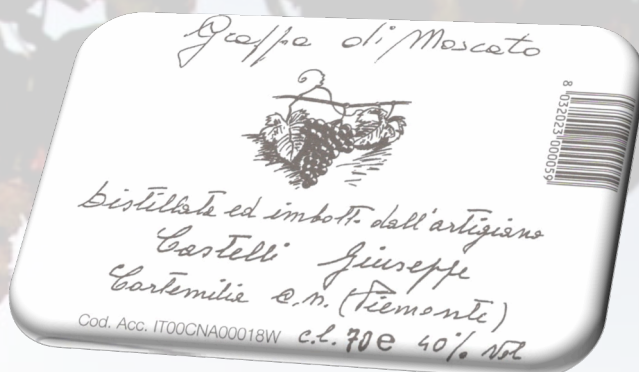 Grappa di Moscato
8 032023 000059
Distillata ed imbott. dall'artigiano
Castelli Giuseppe
Cortemilia C.N. (Piemonte)
Cod. Acc. IT00CNA00018W c.l. 70 e 40% Vol